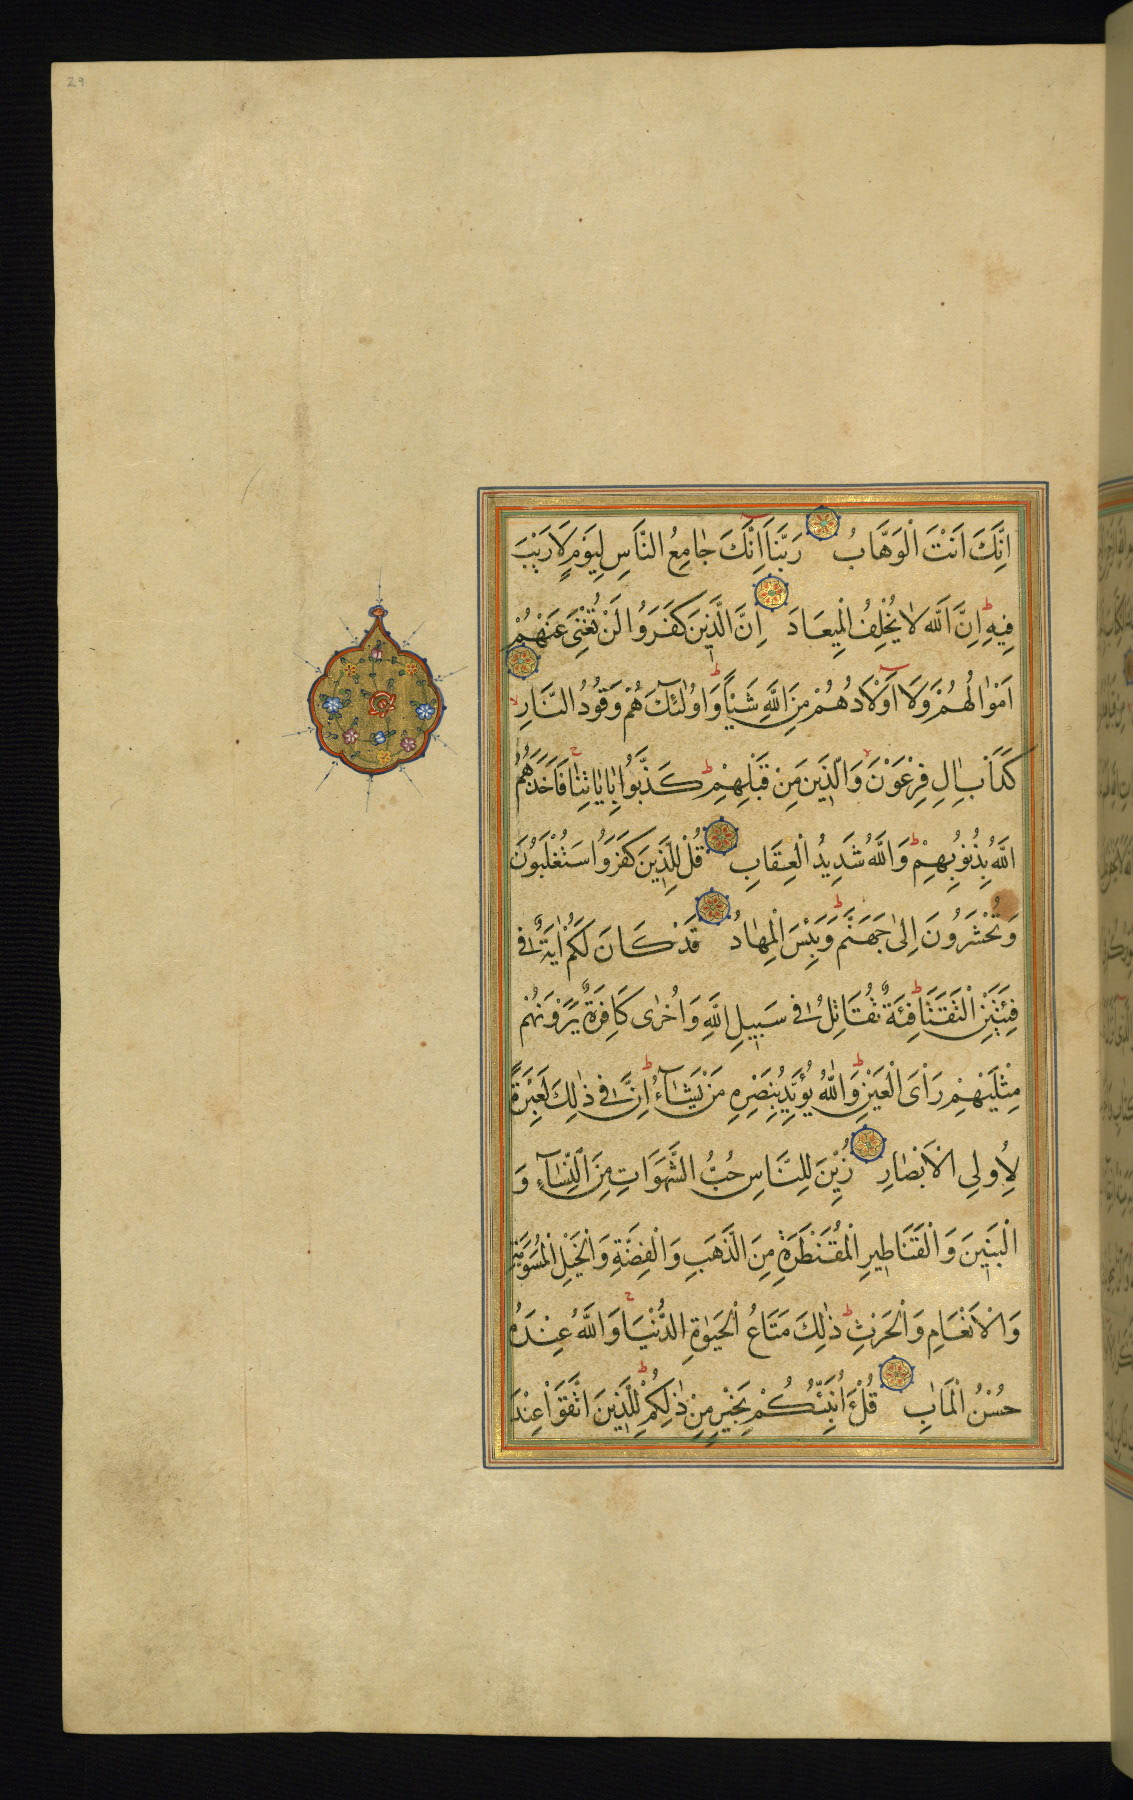 29
اِنَّكَ اَنْتَ الْوَهَّابُ رَبَّنَا اِنَّكَ جَامِعُ النَّاسِ لِيَوْمٍ لَا رَيْبَ
فِيهِ ط اِنَّ اللّٰهَ لَا يُخْلِفُ الْمِيعَادَ اِنَّ الَّذِينَ كَفَرُوا لَنْ تُغْنِيَ عَنْهُمْ
اَمْوَالُهُمْ وَلَا اَوْلَادُهُمْ مِنَ اللّٰهِ شَيْـًٔا ط وَاُولٰئِكَ هُمْ وَقُودُ النَّارِ لا
كَدَاْبِ اٰلِ فِرْعَوْنَ لا وَالَّذِينَ مِنْ قَبْلِهِمْ ط كَذَّبُوا بِاٰيَاتِنَا ج فَاَخَذَهُمُ
اللّٰهُ بِذُنُوبِهِمْ ط وَاللّٰهُ شَدِيدُ الْعِقَابِ قُلْ لِلَّذِينَ كَفَرُوا سَتُغْلَبُونَ
وَتُحْشَرُونَ اِلٰى جَهَنَّمَ ط وَبِئْسَ الْمِهَادُ قَدْ كَانَ لَكُمْ اٰيَةٌ فِي
فِئَتَيْنِ الْتَقَتَا ط فِئَةٌ تُقَاتِلُ فِي سَبِيلِ اللّٰهِ وَاُخْرٰى كَافِرَةٌ يَرَوْنَهُمْ
مِثْلَيْهِمْ رَاْيَ الْعَيْنِ ط وَاللّٰهُ يُؤَيِّدُ بِنَصْرِهِ مَنْ يَشَاءُ ط اِنَّ فِي ذٰلِكَ لَعِبْرَةً
لِاُولِي الْاَبْصَارِ زُيِّنَ لِلنَّاسِ حُبُّ الشَّهَوَاتِ مِنَ النِّسَاءِ وَ
الْبَنِينَ وَالْقَنَاطِيرِ الْمُقَنْطَرَةِ مِنَ الذَّهَبِ وَالْفِضَّةِ وَالْخَيْلِ الْمُسَوَّمَةِ
وَالْاَنْعَامِ وَالْحَرْثِ ط ذٰلِكَ مَتَاعُ الْحَيٰوةِ الدُّنْيَا ج وَاللّٰهُ عِنْدَهُ
حُسْنُ الْمَاٰبِ قُلْ اَؤُنَبِّئُكُمْ بِخَيْرٍ مِنْ ذٰلِكُمْ ط لِلَّذِينَ اتَّقَوْا عِنْدَ